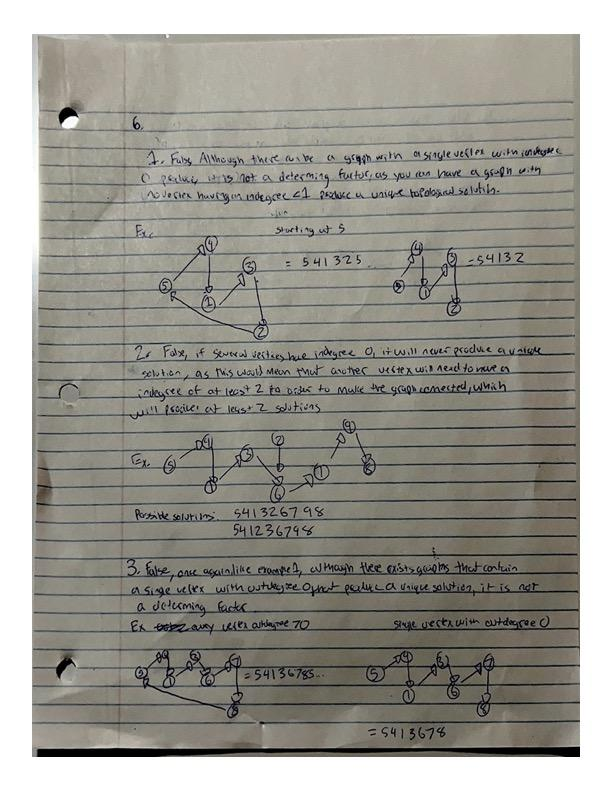 6.
1. False, Although there can be a graph with a single vertex with indegree
0 produce it is not a determining factor, as you can have a graph with
no vertex having an indegree <1 produce a unique topological solution.
Ex. starting at 5
4
5 1 3 2 = 541325...
4
5 1 3 2 = 54132
2. False, if several vertices have indegree 0, it will never produce a unique
solution, as this would mean that another vertex will need to have a
indegree of at least 2 in order to make the graph connected, which
will produce at least 2 solutions
Ex. 5 4 1 3 2 6 7 9 8
Possible solutions: 541326798
541236798
3. False, once again like example 1, although there exists graphs that contain
a single vertex with outdegree 0 that produce a unique solution, it is not
a determining factor.
Ex every vertex outdegree >0 single vertex with outdegree 0
5 4 1 3 6 7 8 = 54136785...
5 4 1 3 6 7 8
= 5413678